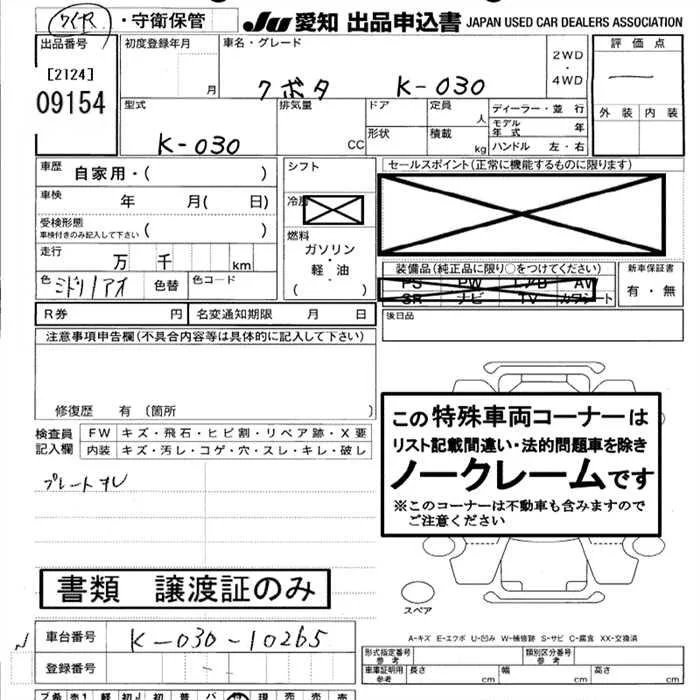 ・守衛保管
JU 愛知 出品申込書 JAPAN USED CAR DEALERS ASSOCIATION
出品番号
[2124]
09154
初度登録年月
月
車名・グレード
クボタ K-030
2WD
・
4WD
評価点
外装 内装
型式
K-030
排気量
CC
ドア
形状
定員
人
積載
kg
ディーラー・並 行
モデル年式 年
ハンドル 左・右
車歴
自家用・( )
車検
年 月( 日)
受検形態
車検付きのみ記入して下さい ( )
走行
万 千 km
色 ミドリ/アイ 色替 色コード
シフト
燃料
ガソリン
・
軽・油
( )
セールスポイント(正常に機能するものに限ります)
装備品(純正品に限り○をつけてください)
PS PW エアB AW
SR ナビ TV カワシート
新車保証書
有・無
R券 円 名変通知期限 月 日
後日品
注意事項申告欄(不具合内容等は具体的に記入して下さい)
修復歴 有 〔箇所 〕
検査員記入欄
FW キズ・飛石・ヒビ割・リペア跡・X要
内装 キズ・汚レ・コゲ・穴・スレ・キレ・破レ
プレートオレ
この特殊車両コーナーは
リスト記載間違い・法的問題車を除き
ノークレームです
※このコーナーは不動車も含みますので
ご注意ください
スペア
書類 譲渡証のみ
A-キズ E-エクボ U-凹み W-補修跡 S-サビ C-腐食 XX-交換済
車台番号 K-030-10265
登録番号
形式指定番号
参考
類別区分番号
参考
車庫証明用
参考
長さ cm 幅 cm 高さ cm